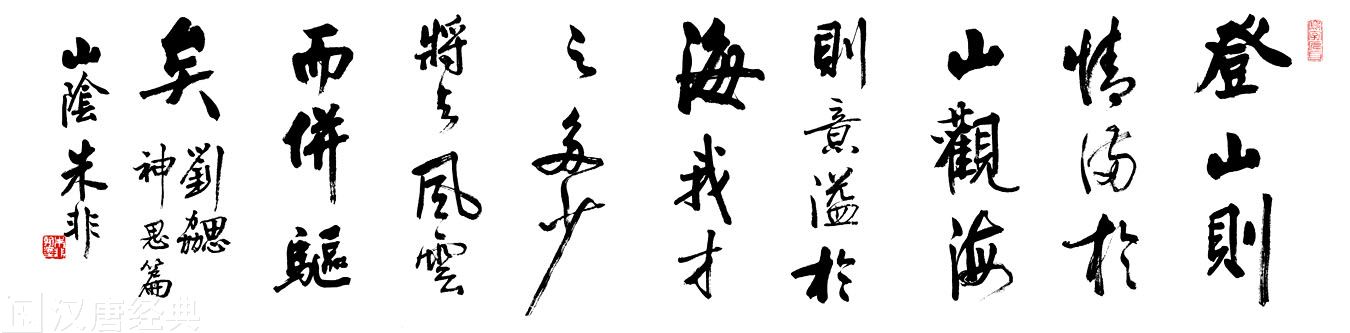 登山則
情滿於
山觀海
則意溢於
海我才
之多少
將與風雲
而併驅
矣
劉勰
神思篇
山陰朱非
汉唐经典